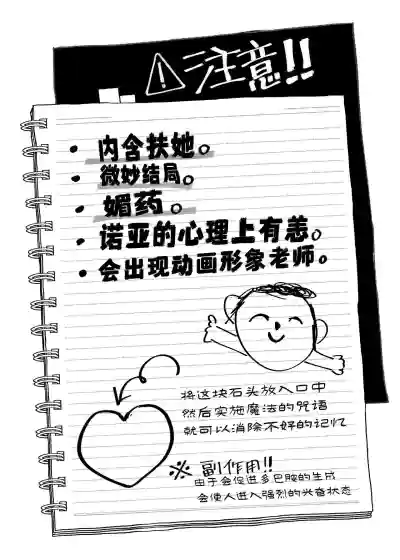 注意!!
· 内含扶她。
· 微妙结局。
· 媚药。
· 诺亚的心理上有恙。
· 会出现动画形象老师。
将这块石头放入口中
然后实施魔法的咒语
就可以消除不好的记忆
※ 副作用!!
由于会促进多巴胺的生成
会使人进入强烈的兴奋状态